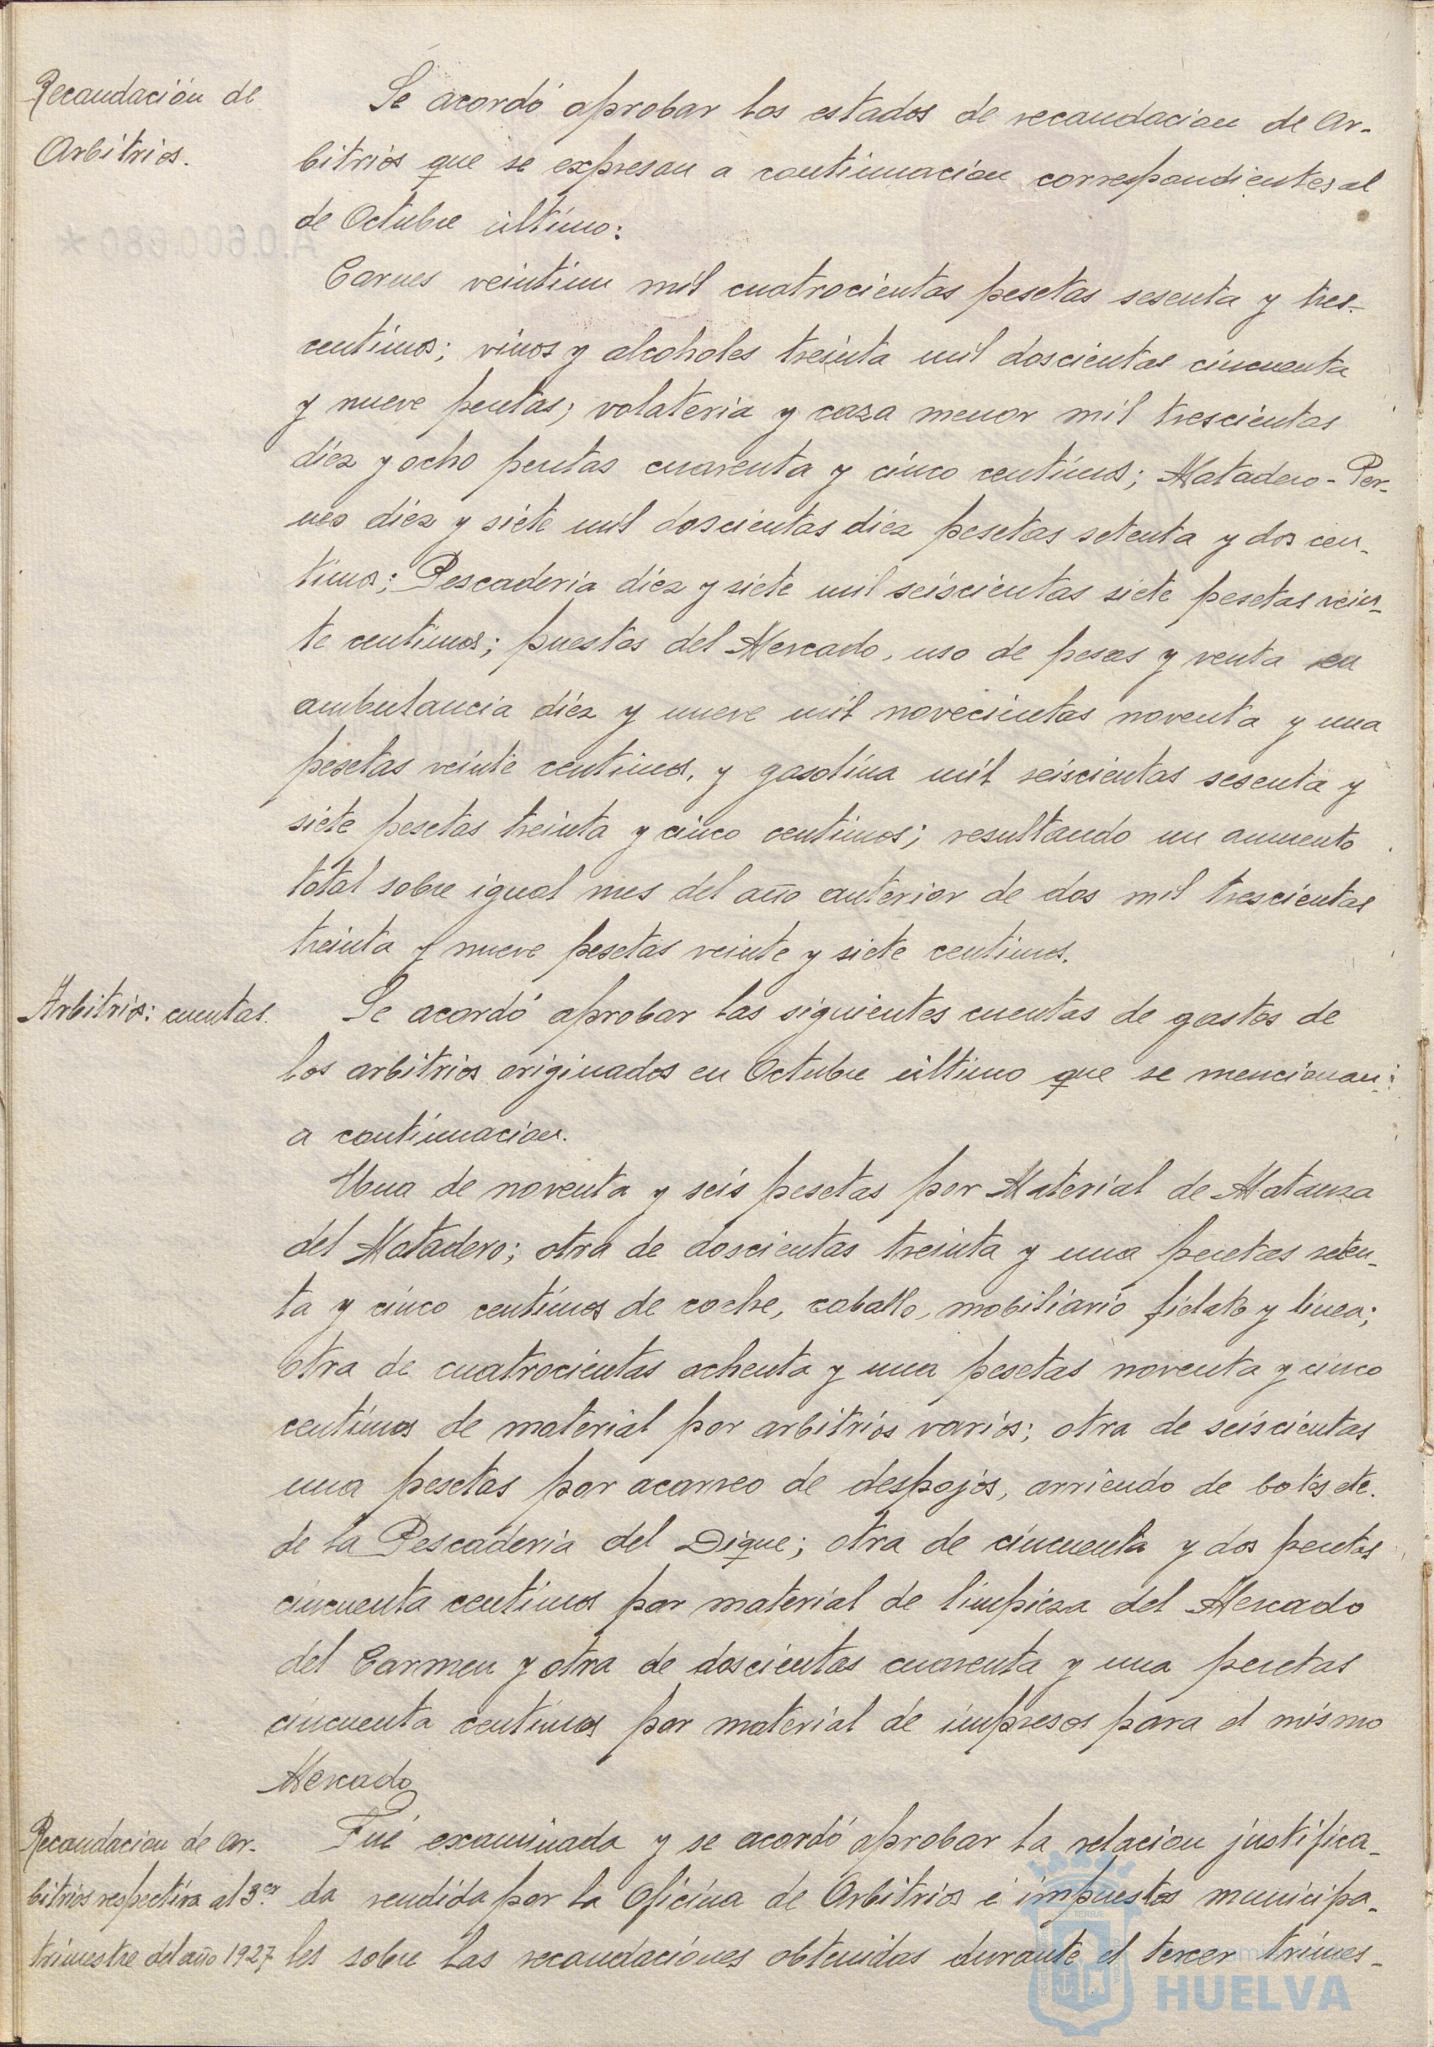 Recaudación de
Arbitrios.
Se acordó aprobar los estados de recaudacion de Ar-
bitrios que se expresan a continuacion correspondientes al
de Octubre último:
Carnes veintiun mil cuatrocientas pesetas sesenta y tres
centimos; vinos y alcoholes treinta mil doscientas cincuenta
y nueve pesetas; volateria y caza menor mil trescientas
diez y ocho pesetas cuarenta y cinco centimos; Matadero-Per-
neo diez y siete mil doscientas diez pesetas setenta y dos cen-
timos; Pescaderia diez y siete mil seiscientas siete pesetas vein-
te centimos; puestos del Mercado, uso de pesas y venta en
ambulancia diez y nueve mil novecientas noventa y una
pesetas veinte centimos, y gasolina mil seiscientas sesenta y
siete pesetas treinta y cinco centimos; resultando un aumento
total sobre igual mes del año anterior de dos mil trescientas
treinta y nueve pesetas veinte y siete centimos.
Arbitrios: cuentas.
Se acordó aprobar las siguientes cuentas de gastos de
los arbitrios originados en Octubre último que se mencionan
a continuacion.
Una de noventa y seis pesetas por Material de Matanza
del Matadero; otra de doscientas treinta y una pesetas seten-
ta y cinco centimos de coche, caballo, mobiliario fielato y linea;
otra de cuatrocientas ochenta y una pesetas noventa y cinco
centimos de material por arbitrios varios; otra de seiscientas
una pesetas por acarreo de despojos, arriendo de botes etc.
de la Pescaderia del Dique; otra de cincuenta y dos pesetas
cincuenta centimos por material de limpieza del Mercado
del Carmen y otra de doscientas cuarenta y una pesetas
cincuenta centimos por material de impresos para el mismo
Mercado
Recaudacion de Ar-
bitrios respectiva al 3.er
trimestre del año 1927
Fué examinada y se acordó aprobar la relacion justifica-
da rendida por la Oficina de Arbitrios é impuestos municipa-
les sobre las recaudaciones obtenidas durante el tercer trimes-
HUELVA